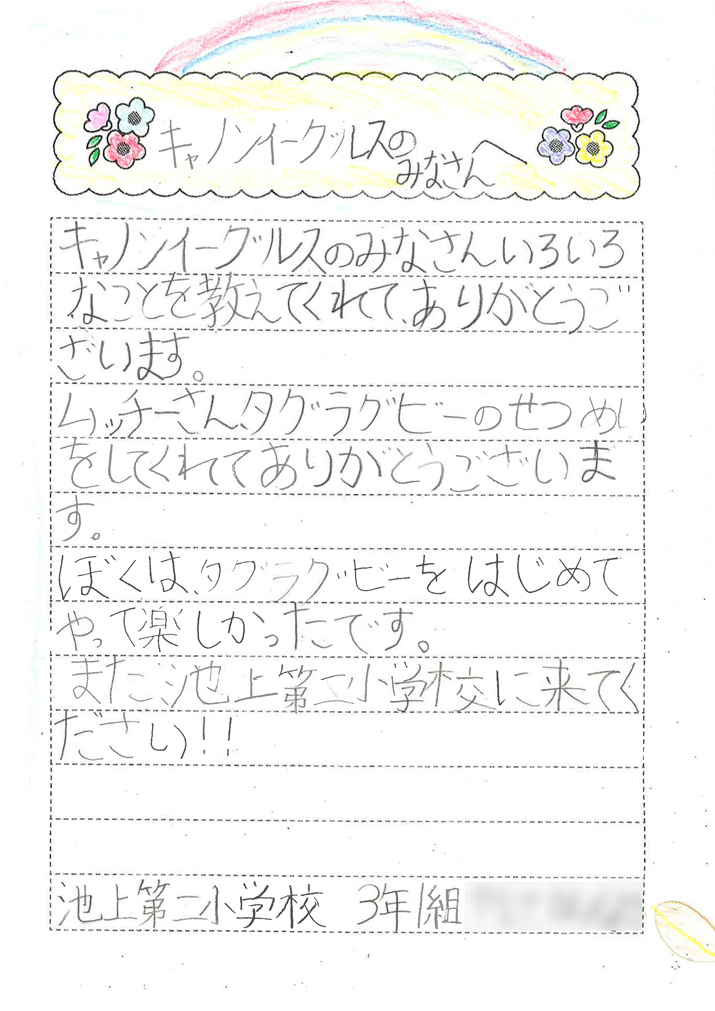 キャノンイーグルスの
みなさんへ
キャノンイーグルスのみなさんいろいろ
なことを教えてくれて、ありがとうご
ざいます。
ムッチーさん、タグラグビーのせつめい
をしてくれてありがとうございま
す。
ぼくは、タグラグッビーをはじめて
やって楽しかったです。
また、池上第二小学校に来てく
ださい!!
池上第二小学校 3年1組